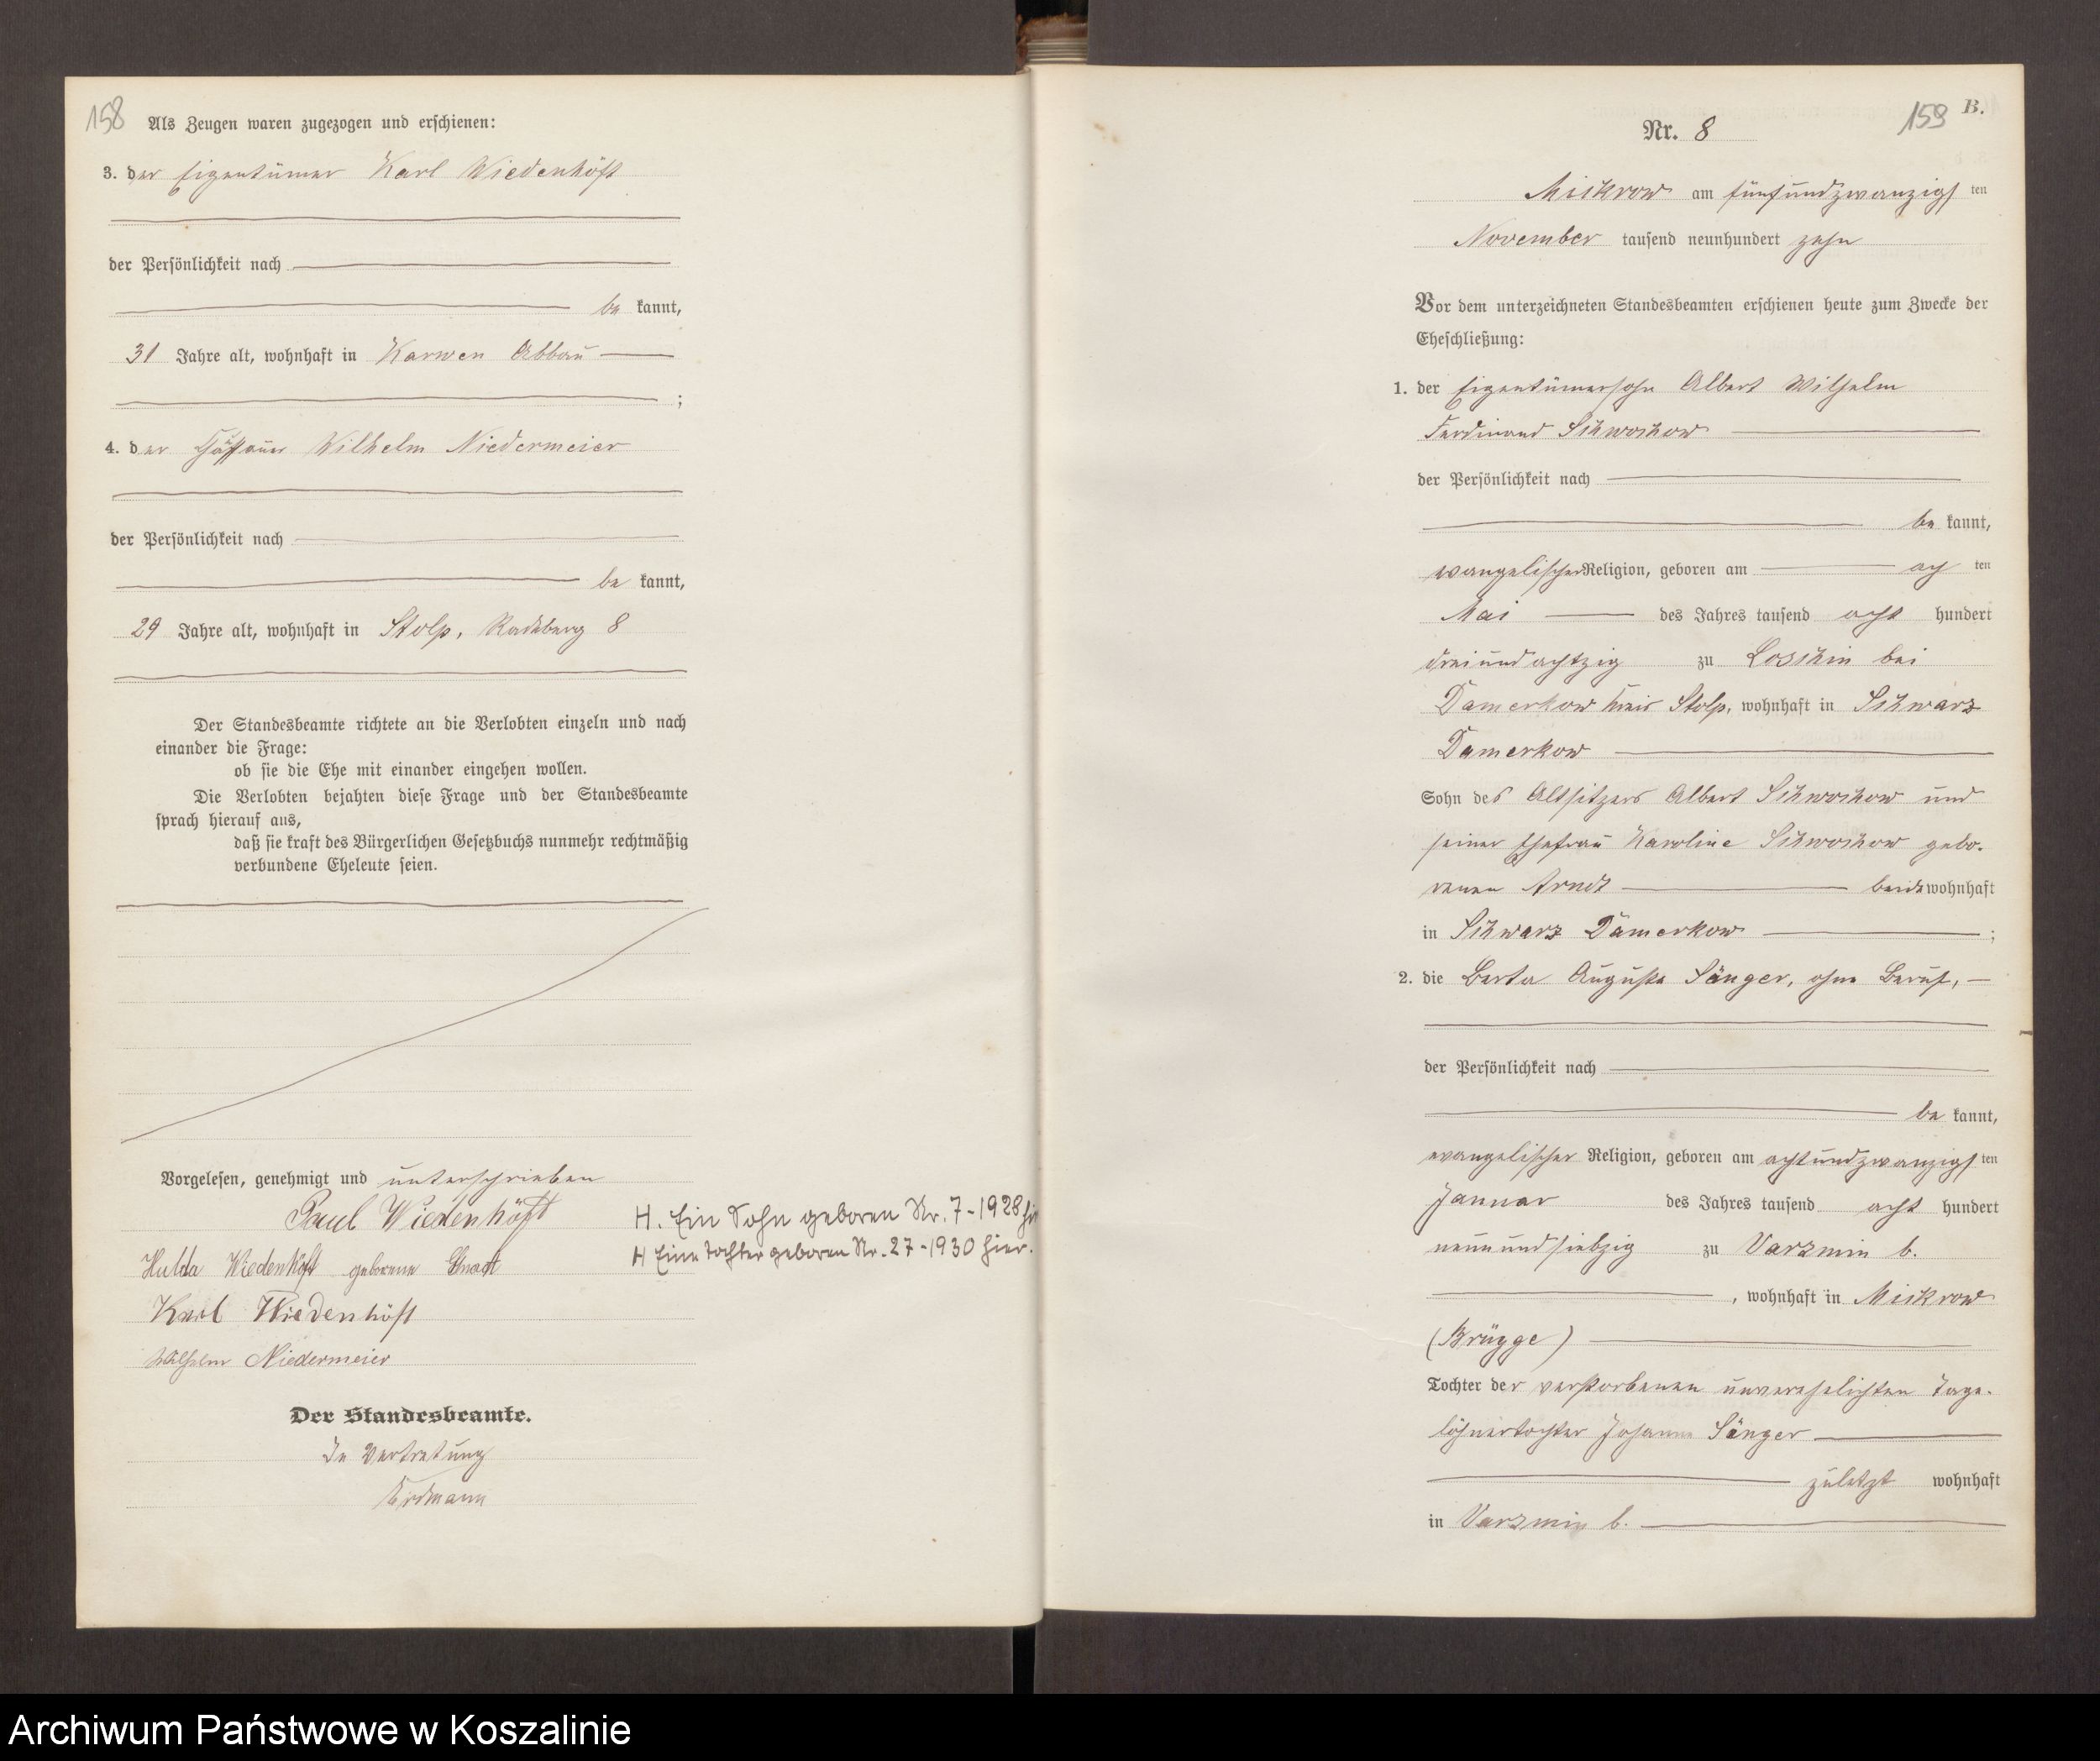 158
Als Zeugen waren zugezogen und erschienen:
3. der Eigentümer Karl Wiedenhöft
der Persönlichkeit nach
be kannt,
31 Jahre alt, wohnhaft in Karwen Abbau
;
4. der Wilhelm Niedermeier
der Persönlichkeit nach
be kannt,
29 Jahre alt, wohnhaft in Stolp, 8
Der Standesbeamte richtete an die Verlobten einzeln und nach
einander die Frage:
ob sie die Ehe mit einander eingehen wollen.
Die Verlobten bejahten diese Frage und der Standesbeamte
sprach hierauf aus,
daß sie kraft des Bürgerlichen Gesetzbuchs nunmehr rechtmäßig
verbundene Eheleute seien.
Vorgelesen, genehmigt und unterschrieben
Paul Wiedenhöft
Hulda Wiedenhöft geborene
Karl Wiedenhöft
Wilhelm Niedermeier
H. Ein Sohn geboren Nr. 7-1928 hier
H Eine Tochter geboren Nr. 27-1930 hier.
Der Standesbeamte.
In Vertretung
Erdmann
159 B.
Nr. 8
Mickrow am fünfundzwanzigs ten
November tausend neunhundert zehn
Vor dem unterzeichneten Standesbeamten erschienen heute zum Zwecke der
Eheschließung:
1. der Eigentümersohn Albert Wilhelm
Ferdinand Schwochow
der Persönlichkeit nach
be kannt,
evangelischer Religion, geboren am ach ten
Mai des Jahres tausend acht hundert
dreiundachtzig zu Loschin bei
Damerkow Kreis Stolp, wohnhaft in Schwarz
Damerkow
Sohn des Altsitzers Albert Schwochow und
seiner Ehefrau Karoline Schwochow gebo-
renen Arndt beide wohnhaft
in Schwarz Damerkow ;
2. die Berta Auguste Sänger, ohne Beruf,
der Persönlichkeit nach
be kannt,
evangelischer Religion, geboren am achtundzwanzigs ten
Januar des Jahres tausend acht hundert
neunundsiebzig zu Varzmin b.
, wohnhaft in Mickrow
(Brügge)
Tochter der verstorbenen unverehelichten Tage-
löhnertochter Johanna Sänger
zuletzt wohnhaft
in Varzmin b.
Archiwum Państwowe w Koszalinie